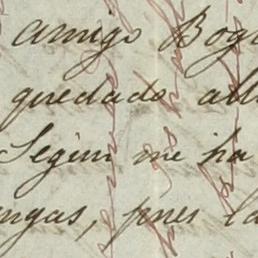 amigo Bog
quedado all
Segun me ha
ngas, pues la